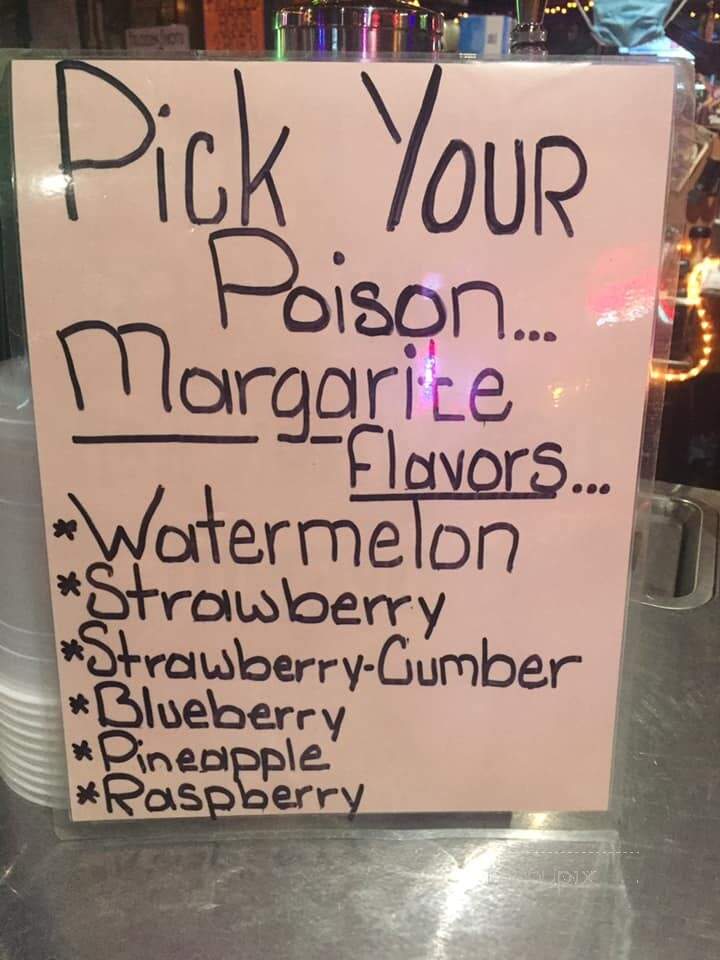 Pick Your
Poison...
Margarite
flavors...
*Watermelon
*Strawberry
*Strawberry-Cumber
*Blueberry
*Pineapple
*Raspberry